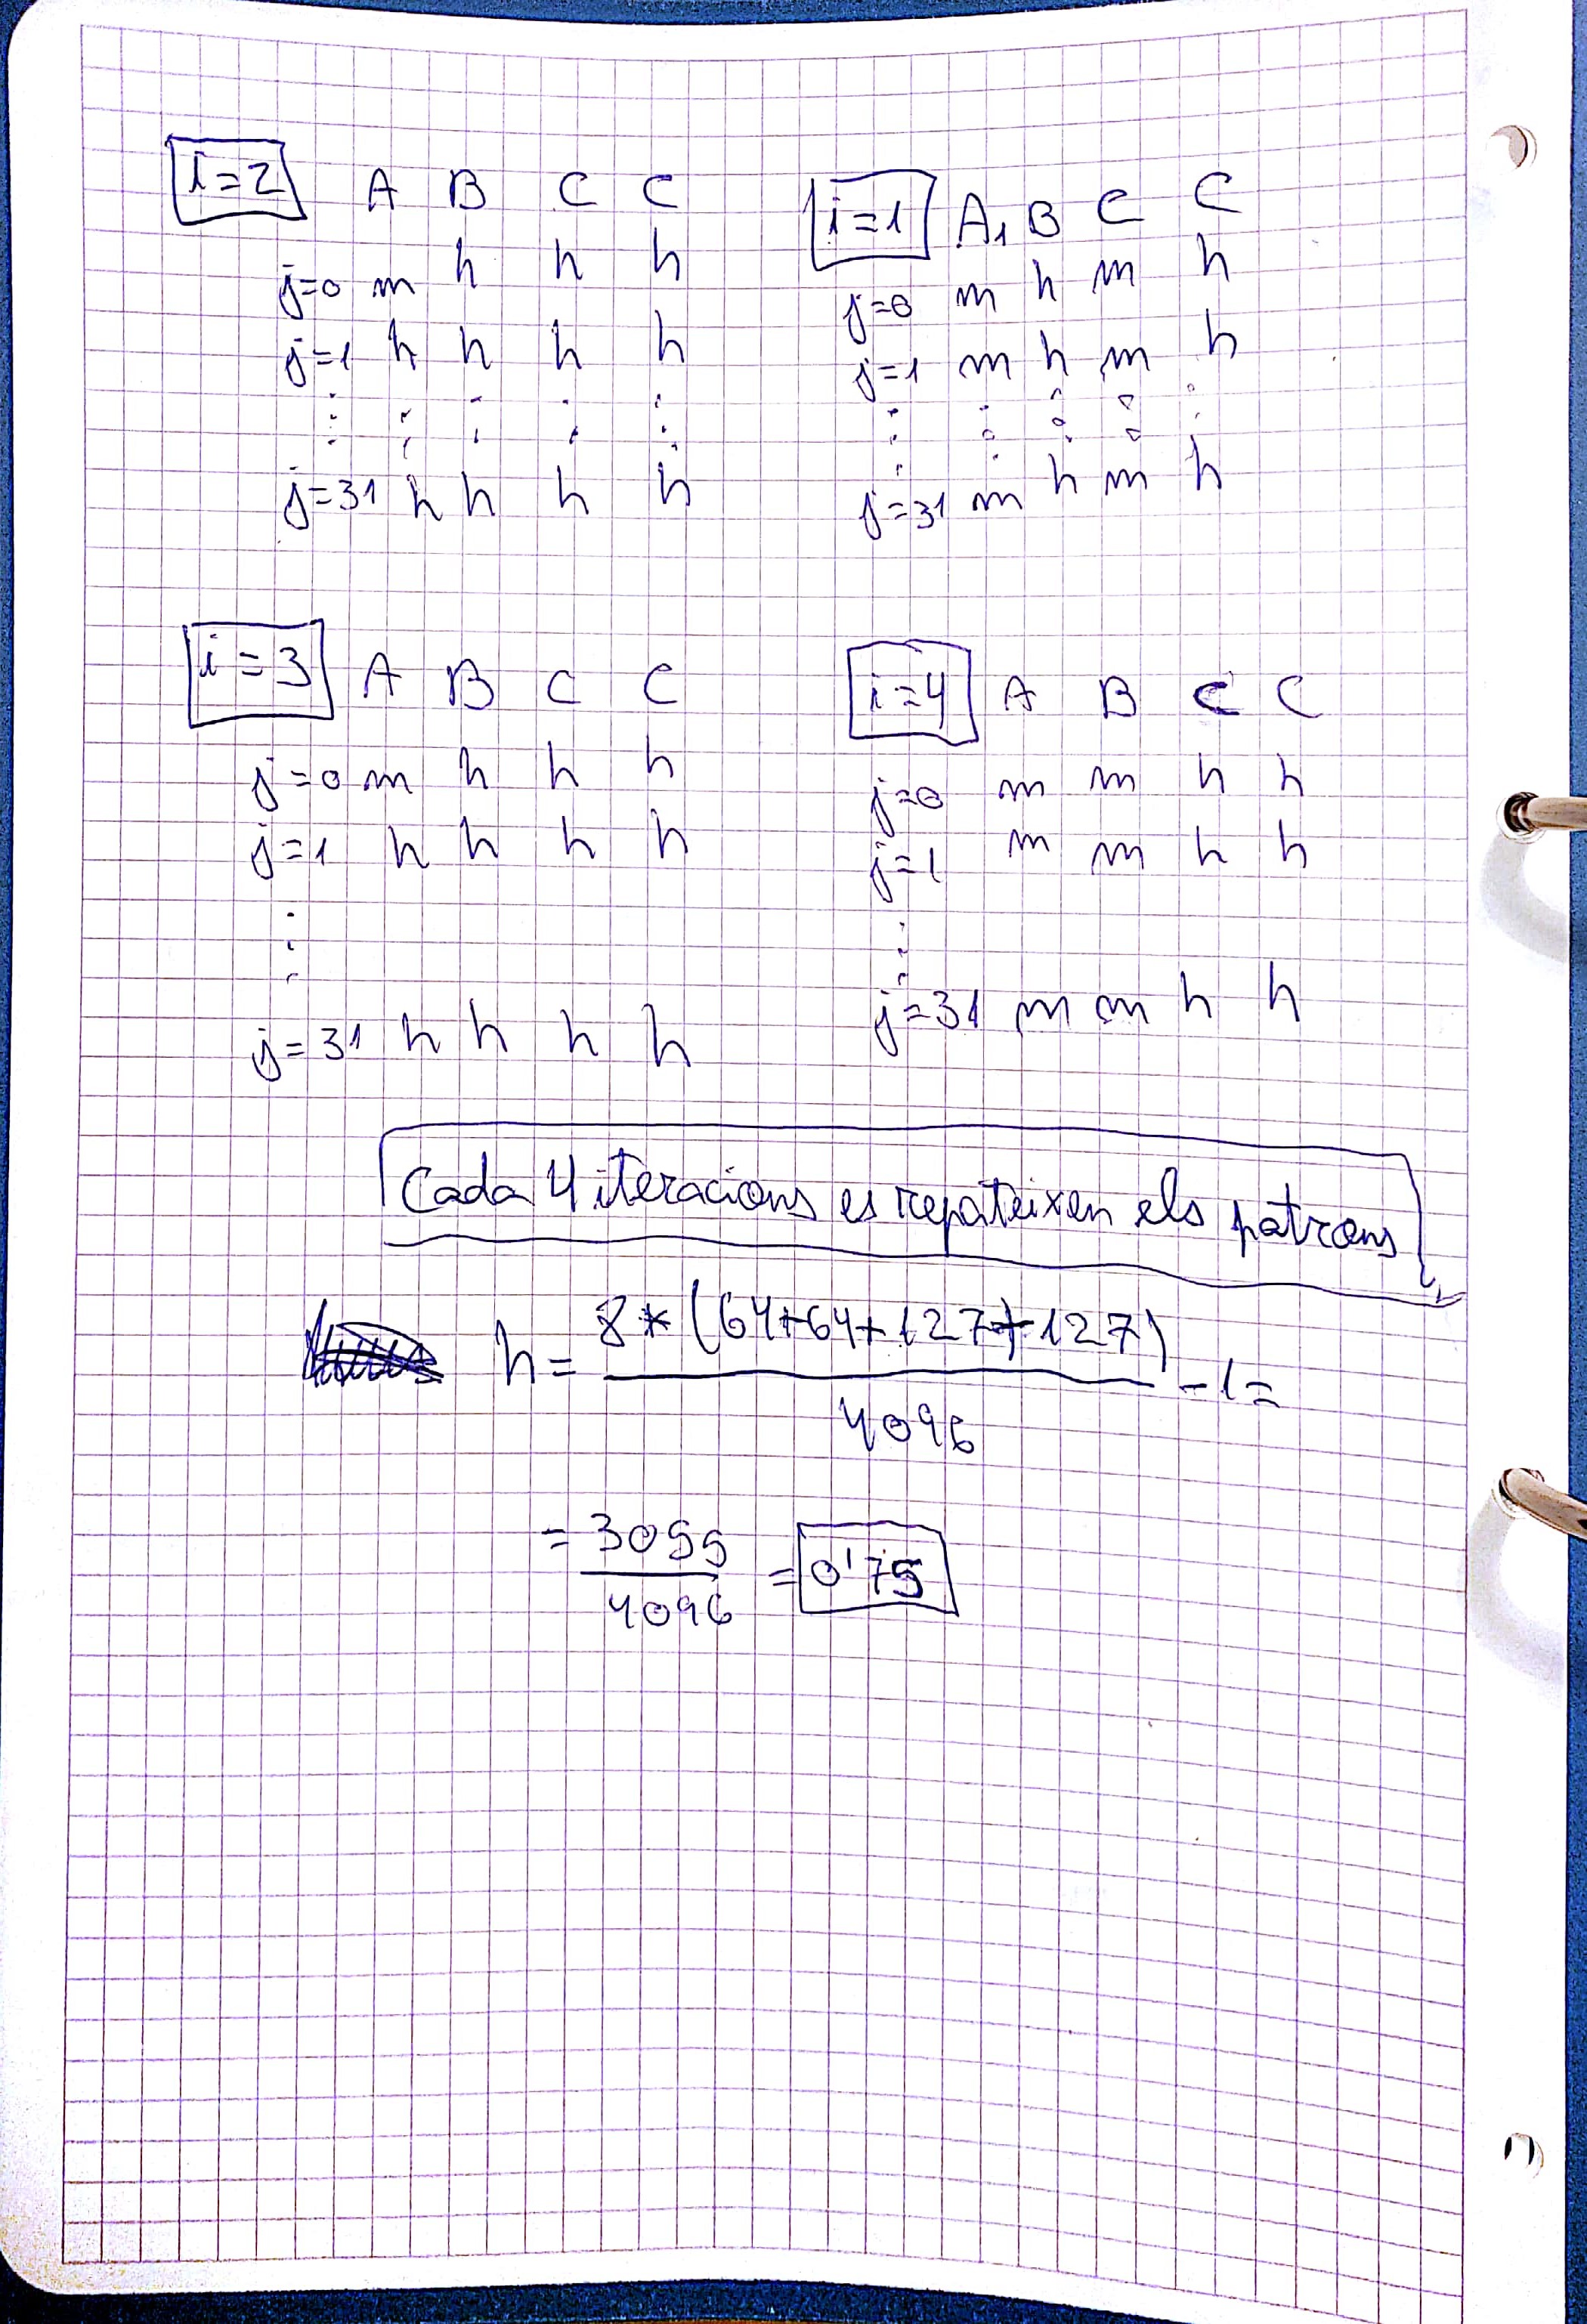 i=2 A B C C
j=0 m h h h
j=1 h h h h
⋮ ⋮ ⋮ ⋮ ⋮
j=31 h h h h
i=1 A₁ B C C
j=0 m h m h
j=1 m h m h
⋮ ⋮ ⋮ ⋮ ⋮
j=31 m h m h
i=3 A B C C
j=0 m h h h
j=1 h h h h
⋮
j=31 h h h h
i=4 A B C C
j=0 m m h h
j=1 m m h h
⋮
j=31 m m h h
Cada 4 iteracions es repateixen els patrons
h = 8*(64+64+127+127) / 4096 - 1 =
= 3055 / 4096 = 0'75